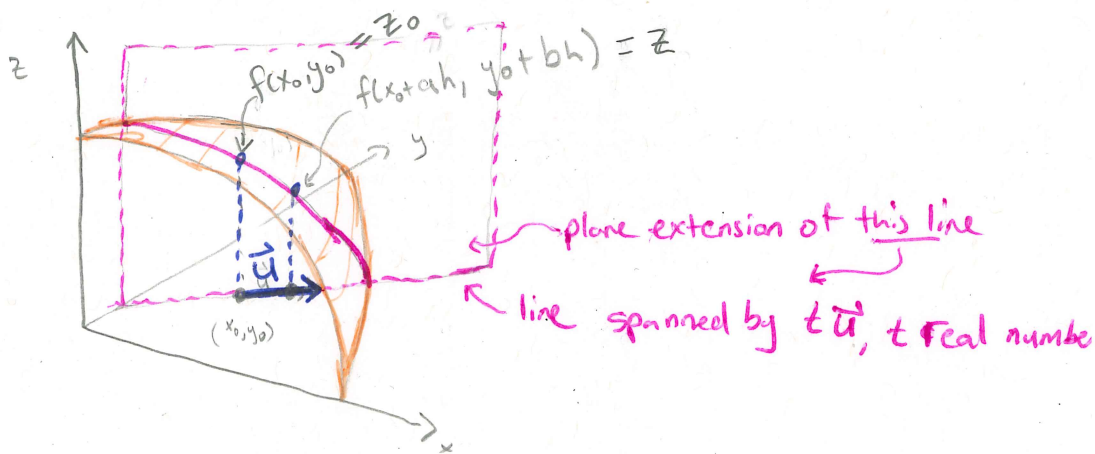 z
f(x₀,y₀) = z₀
f(x₀+ah, y₀+bh) = z
y
plane extension of this line
u⃗
line spanned by t u⃗, t real numbe
(x₀,y₀)
x